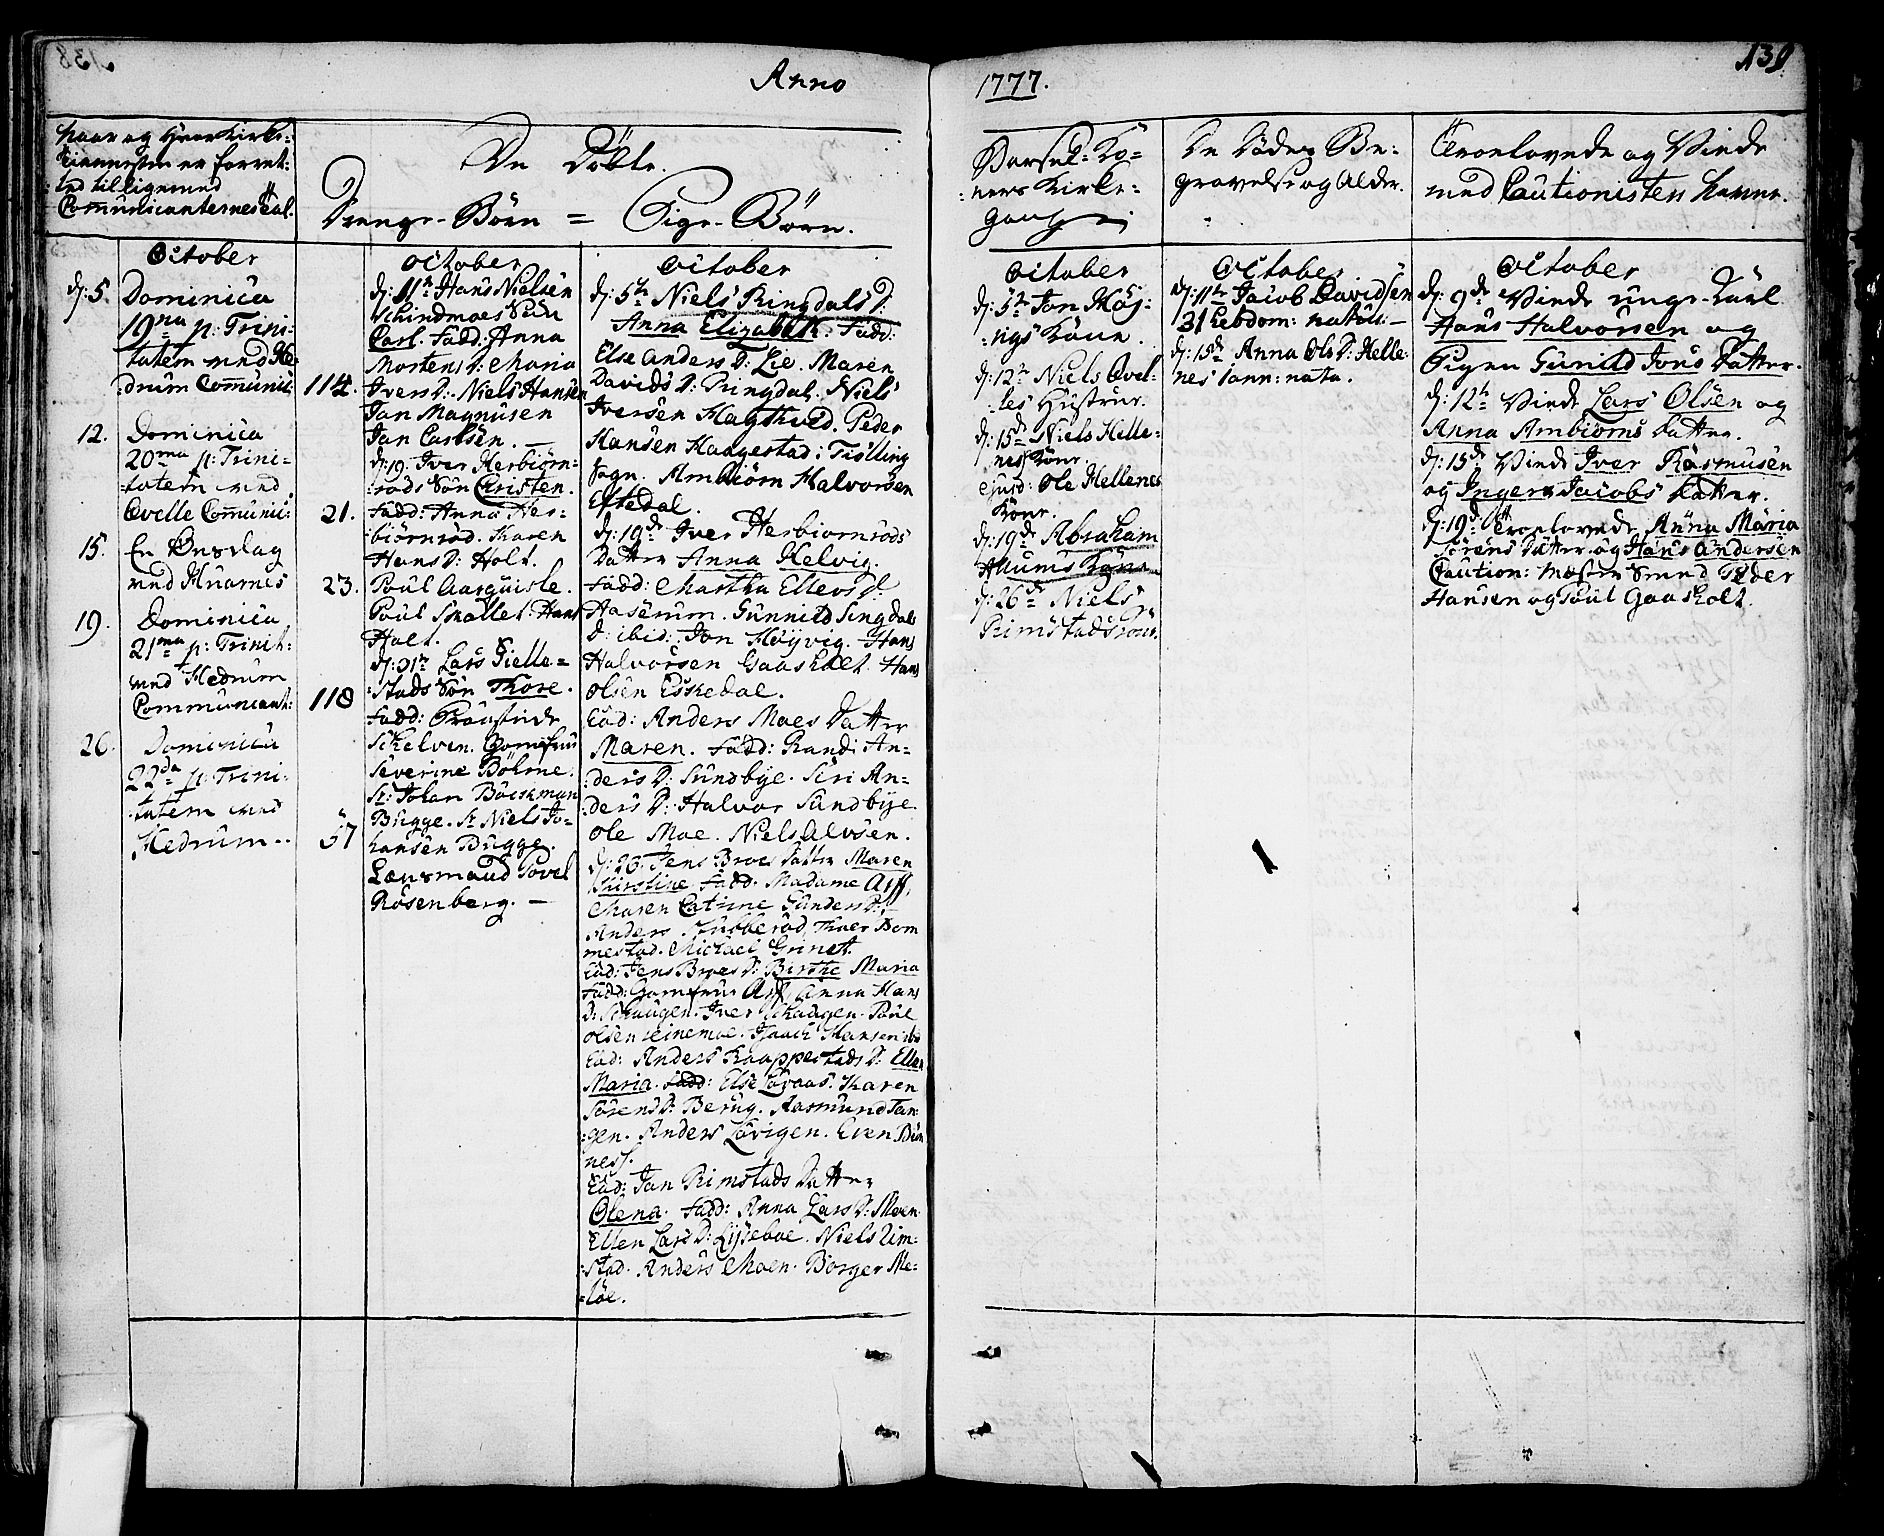 Anno
1777.
139
Naar og Hvor Kirke-
Tiennesten er forret-
ted tilligemed
Communicanternes Tal.
De Döbte.
Drenge-Börn = Pige-Börn.
Barsel-Ko-
ners Kirke-
gang
De Dödes Be-
gravelse og Alder.
Troelovede og Viede
med Cautionisters Navne.
October
d: 5. Dominica
19na p: Trini-
tatem med He-
drum Communic:
114.
12. Dominica
20ma p: Trini-
tatem med
Qvelle Communi:
21.
15. En Onsdag
med Hvarnes
23.
19. Dominica
21ma p: Trinit:
med Hedrum
Communicant:
118
26. Dominica
22da p: Trini-
tatem med
Hedrum..
57
October
d: 11te Hans Nielsen
Schindmoes Sön
Carl. Fadd: Anna
Mortens D: Maria
Ivers D: Niels Hansen
Jan Magnusen
Jan Carlsen. —
d: 19. Iver Herbiörn-
röds Sön Cristen.
Fadd: Anna Her-
biörnröd. Karen
Hans D: Holt.
Poul Aasquisle.
Poul Skallet. Hans
Holt.
Lars Gielle-
stads Sön Thore.
Fadd:
Schelven. Jomfrue
Severine Böhme.
Sr: Johan Böckman
Bugge. Sr Niels Jo-
hansen Bugge.
Lænsmand Povel
Rosenberg. —
October
d: 5te Niels Ringdals D:
Anna Elizabeth. Fadd:
Else Anders D: Lie. Maren
Davids D: Ringdal. Niels
Iversen Hagthved. Peder
Hansen Haagestad i Tiølling
Sogn. Ambiörn Halvorsen
Eftedal.
d: 19de Iver Herbiornröds
Datter Anna Helvig.
Fadd: Martha Ellevs D:
Aaserum. Gunnild Lingdals
D: ibid: Jon Høyvig. Hans
Halvorsen Gaasholt. Hans
Olsen Eskedal.
Ead: Anders Moes Datter
Maren. Fadd: Randi An-
ders D: Sundbye. Siri An-
ders D: Halvor Sundbye
Ole Moe. Niels Alvsen.
d: 26. Jens Broes Datter Maren
Kirstine Fadd. Madame Arff.
Maren Catrine Gunders D:
Anders Stubberöd. Thoer Bom
mestad. Michael Grinet.
Ead: Jens Broes D: Birthe Maria
Fadd: Jomfrue Arff. Anna Hans
D: Schaugen. Iver Schaugen. Poul
Olsen Leinemoe. Isach Hansen ibd
Ead: Anders Kaapperstads D: Ellen
Maria. Fadd: Else Løvaas. Karen
Sörens D: Berug. Rasmund Tan-
gen. Anders Løvigen. Even
ness.
Ead: Jan Rimstads Datter
Olena. Fadd: Anna Lars D: Moen
Ellen Lars D: Lysseboe. Niels Rim-
stad. Anders Moen. Börger Me-
löe.
October
d: 5te Jan Høy-
wigs Kone.
d: 12te Niels Qvel-
les Hustrue.
d: 15de Niels Helle-
nes Kone.
ejusd: Ole Hellenes
Kone.
d: 19de Abraham
Allums Kone
d: 26de Niels
Rimstads Kone.
October
d: 11te Jacob Davidsen
31 hebdom: natus. —
d: 15de Anna Ols D: Helle-
nes 1 ann: nata.
October
d: 9de Viede unge Karl
Hans Halvorsen og
Pigen Gunild Jons Datter.
d: 12te Viede Lars Olsen og
Anna Ambiörns Datter.
d: 15de Viede Iver Rasmusen
og Inger Jacobs Datter.
d: 19de Troelovede Anna Maria
Sörens Datter og Hans Andersen
Caution: Mester Smed Peder
Hansen og Poul Gaasholt.